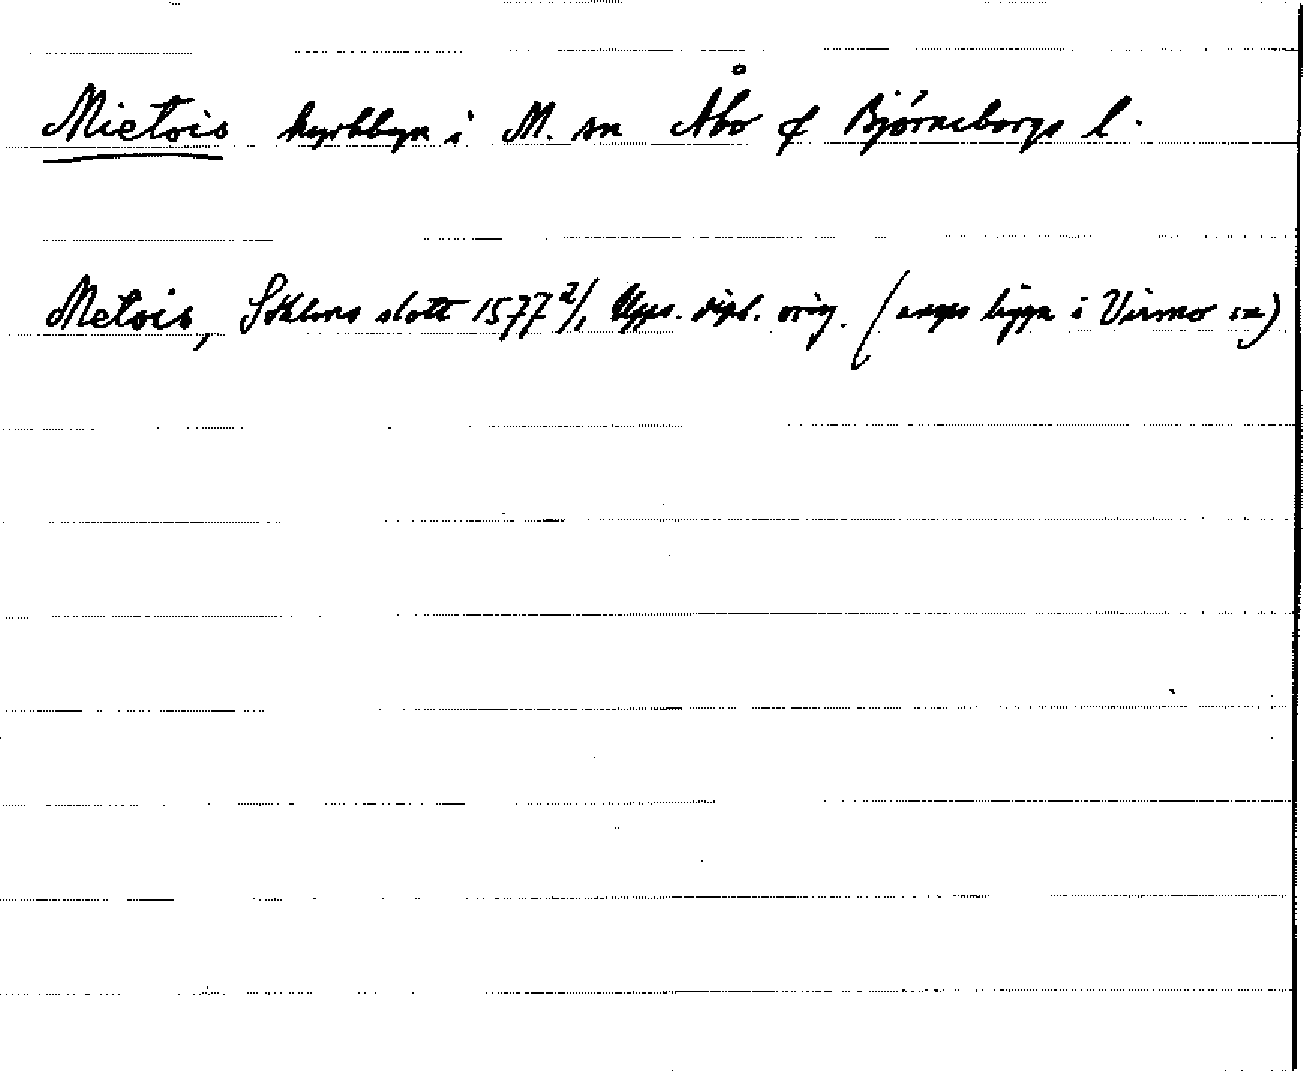 Mietois kyrkbyn i M. sn Åbo & Björneborgs l.
Metois, Sthlms slott 1577 2/1 Upps. dipl. orig. (anges ligga i Virmo sn)